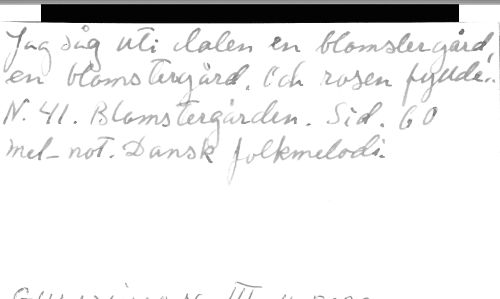 Jag såg uti dalen en blomstergård,
en blomstergård. Och rosen fyllde..
N. 41. Blomstergården. Sid. 60
mel-not. Dansk folkmelodi.